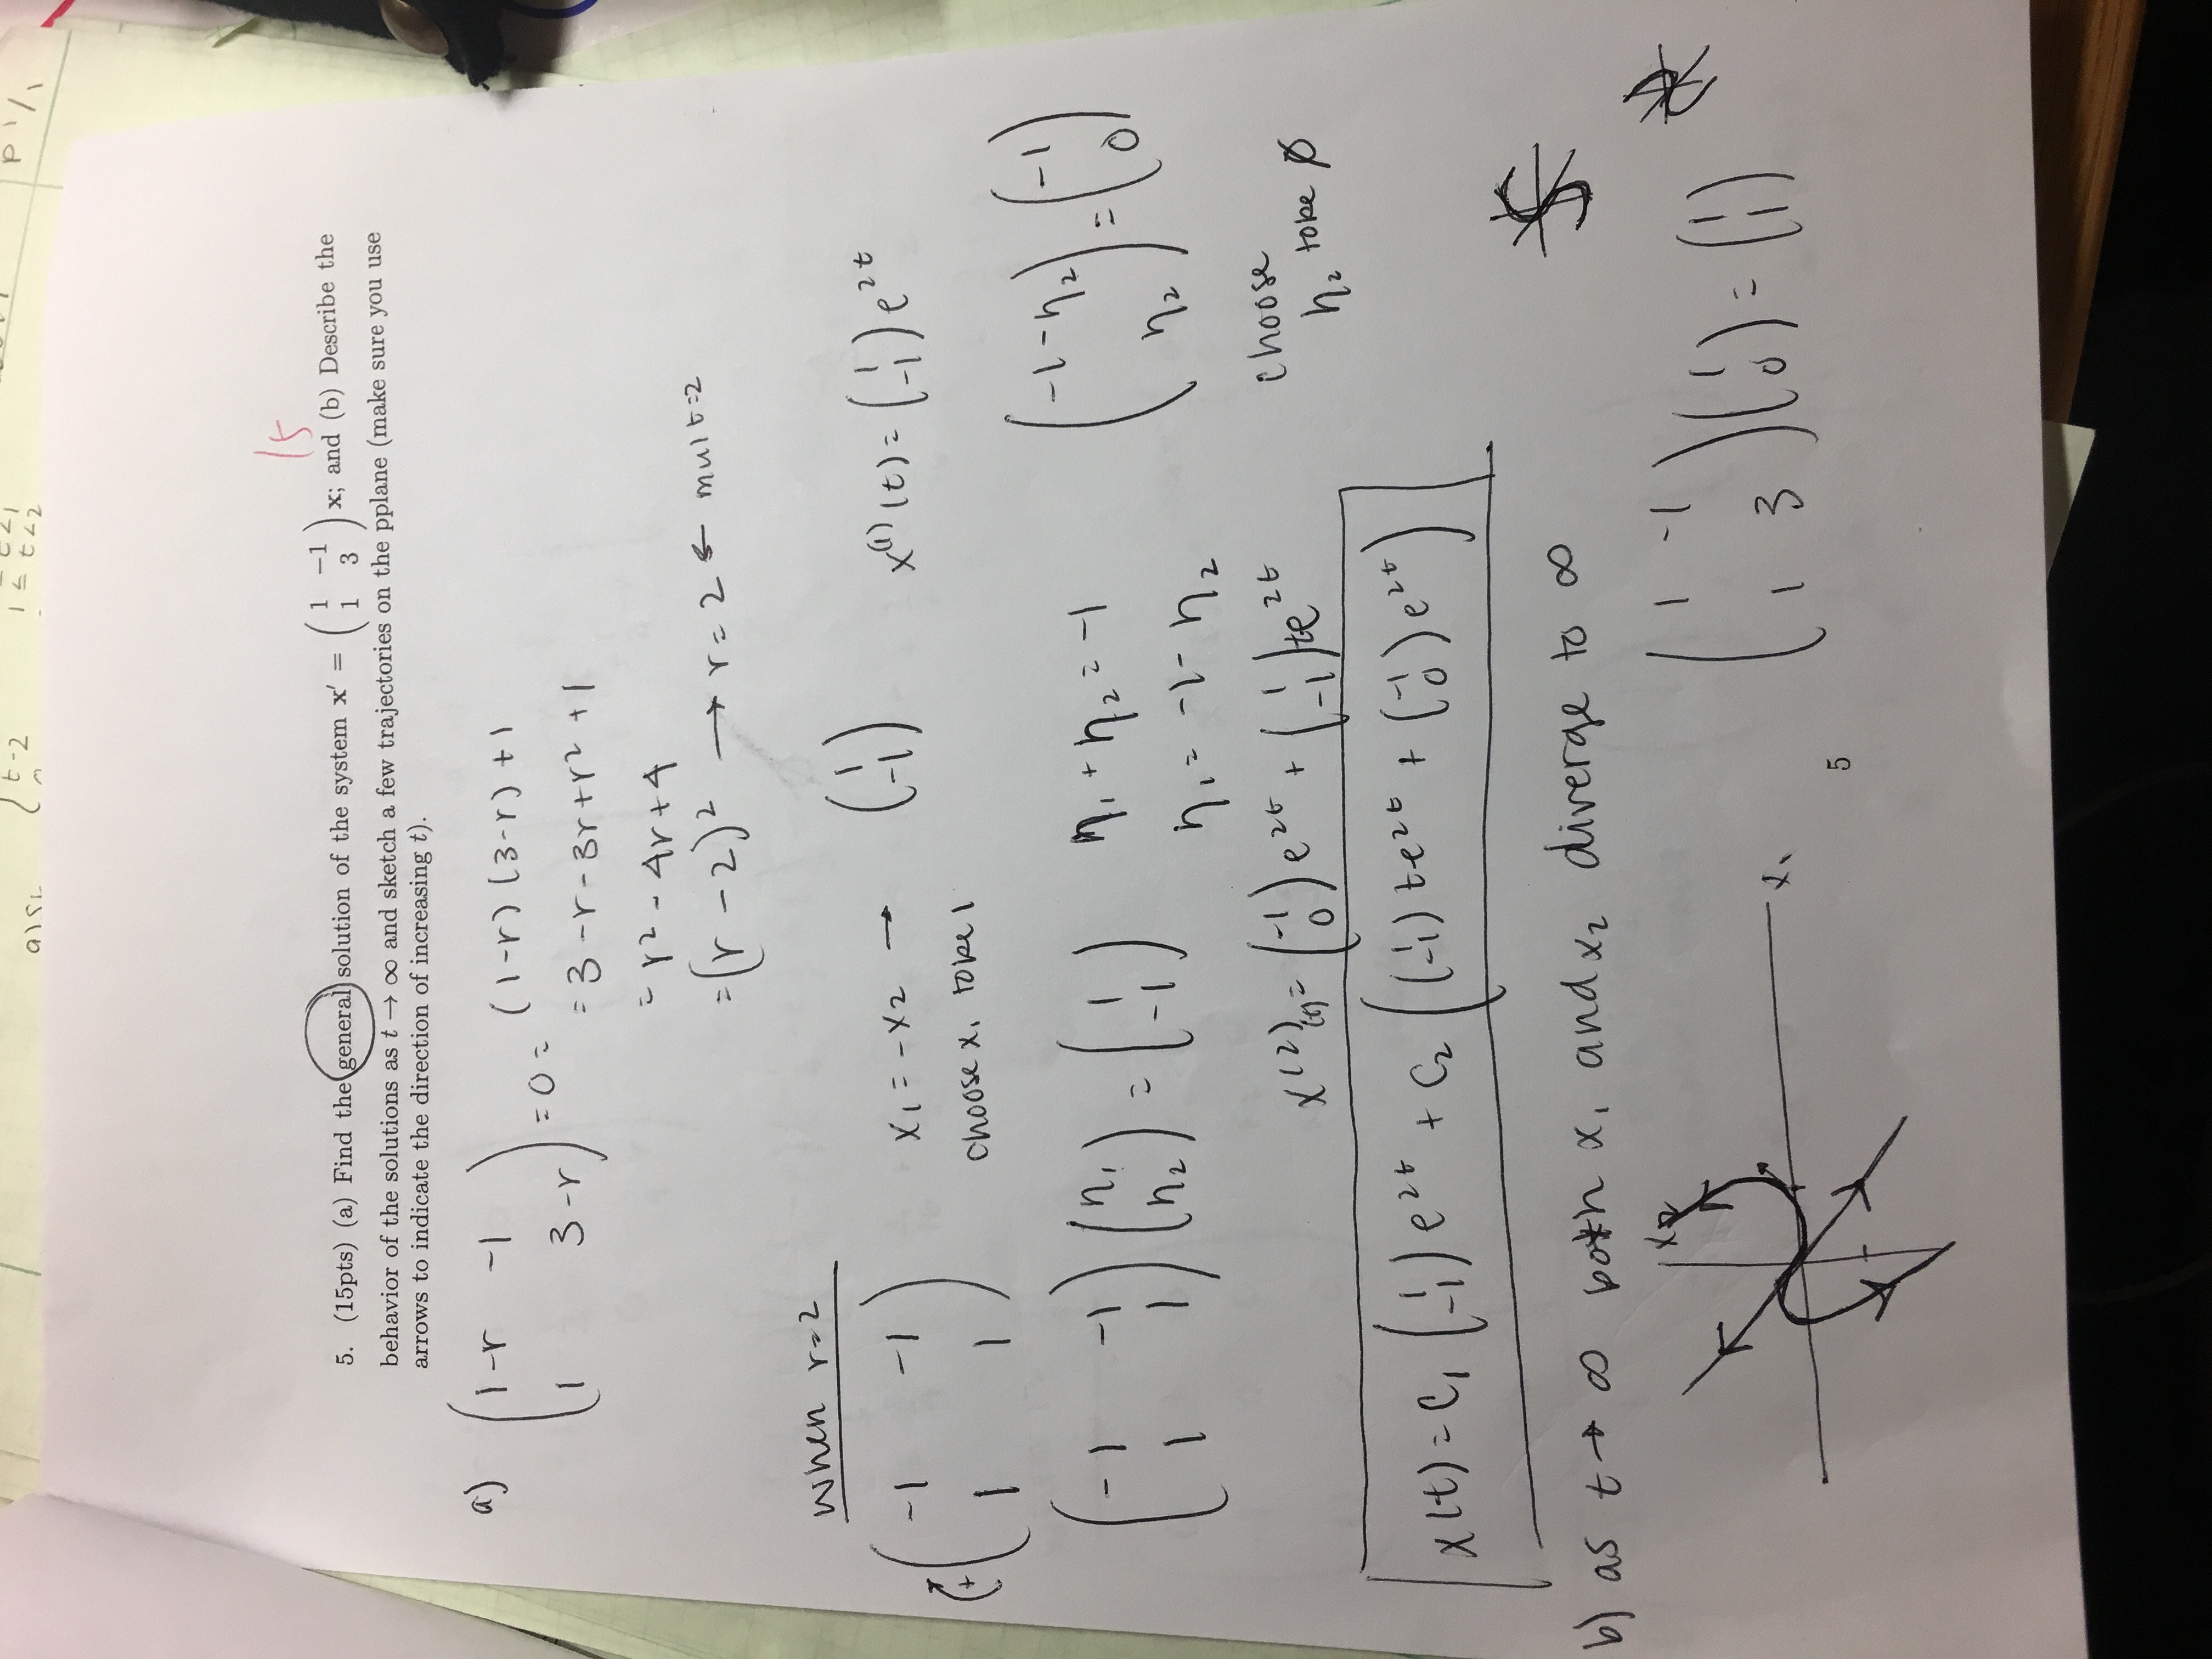 a)
t-2
1 ≤ t<2
t<1
P 1/1
15
5. (15pts) (a) Find the general solution of the system x′ = ( 1 −1 ; 1 3 ) x; and (b) Describe the
behavior of the solutions as t → ∞ and sketch a few trajectories on the pplane (make sure you use
arrows to indicate the direction of increasing t).
a) ( 1-r -1 ; 1 3-r ) = 0 = (1-r)(3-r)+1
= 3-r-3r+r²+1
= r²-4r+4
= (r-2)² → r=2 ← mult=2
when r=2
+ ( -1 -1 ; 1 1 ) x₁=-x₂ → ( 1 ; -1 ) x⁽¹⁾(t)= ( 1 ; -1 ) e^2t
choose x₁ take 1
( -1 -1 ; 1 1 ) ( η₁ ; η₂ ) = ( 1 ; -1 ) η₁+η₂=-1 ( -1-η₂ ; η₂ ) = ( -1 ; 0 )
η₁=-1-η₂
choose
η₂ take 0
x⁽²⁾(t)= ( -1 ; 0 ) e^2t + ( 1 ; -1 ) te^2t
x(t)=C₁ ( 1 ; -1 ) e^2t + C₂ ( ( 1 ; -1 ) te^2t + ( -1 ; 0 ) e^2t )
b) as t → ∞ both x₁ and x₂ diverge to ∞
x₂
x₁
( 1 -1 ; 1 3 ) ( 1 ; 0 ) = ( 1 ; 1 )
5